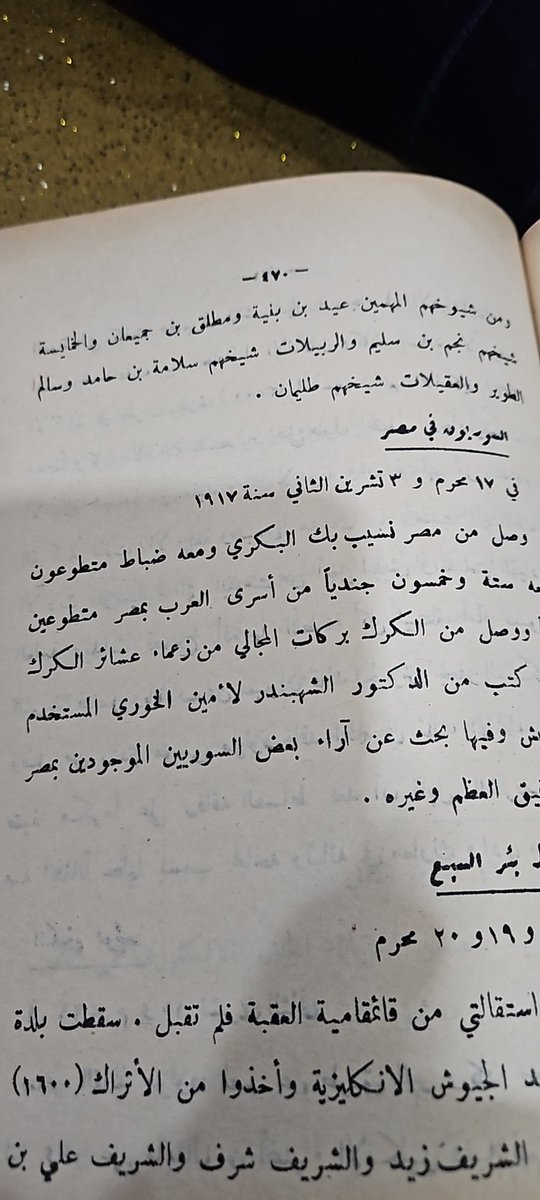 — ٤٧٠ —
ومن شيوخهم المهمين عيد بن بنية ومطلق بن جميعان والخمايسة
شيخهم نجم بن سليم والربيلات شيخهم سلامة بن حامد وسالم
الطوير والعقيلات شيخهم طليمان .
السوريون في مصر
في ١٧ محرم و ٣ تشرين الثاني سنة ١٩١٧
وصل من مصر نسيب بك البكري ومعه ضباط متطوعون
ستة وخمسون جندياً من أسرى العرب بمصر متطوعين
ووصل من الكرك بركات المجالي من زعماء عشائر الكرك
كتب من الدكتور الشهبندر لأمين الخوري المستخدم
وفيها بحث عن آراء بعض السوريين الموجودين بمصر
العظم وغيره .
بئر السبع
و ١٩ و ٢٠ محرم
استقالتي من قائمقامية العقبة فلم تقبل . سقطت بلدة
الجيوش الانكليزية وأخذوا من الأتراك (١٦٠٠)
الشريف زيد والشريف شرف والشريف علي بن